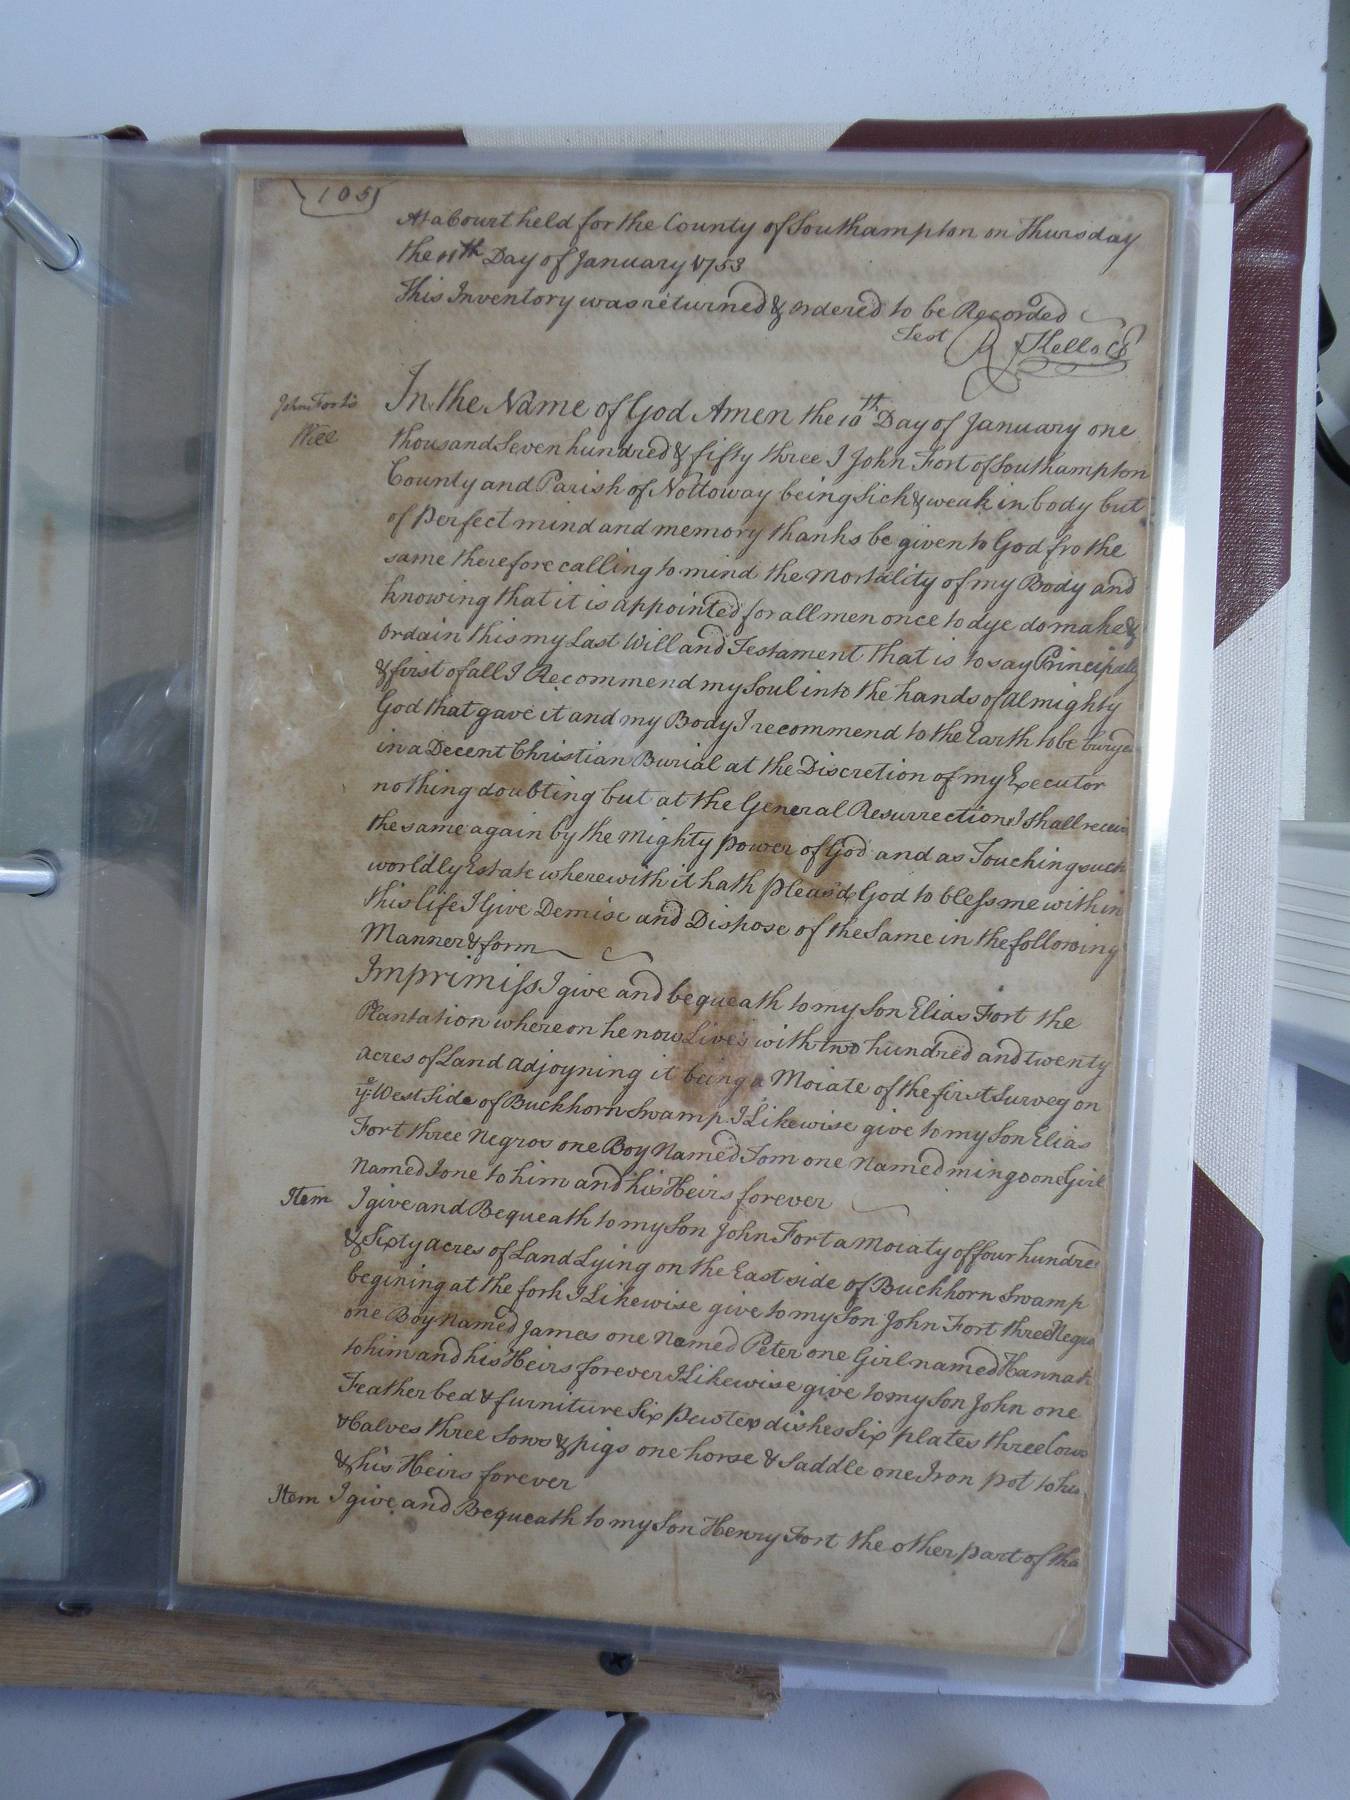 105
At a Court held for the County of Southampton on Thursday
the 11th Day of January 1753
This Inventory was returned & ordered to be Recorded
Test R Kello CC
John Fort's
Will
In the Name of God Amen the 10th Day of January one
thousand Seven hundred & fifty three I John Fort of Southampton
County and Parish of Nottoway being Sick & weak in body but
of Perfect mind and memory thanks be given to God fro the
same therefore calling to mind the Mortality of my Body and
knowing that it is appointed for all men once to dye do make &
ordain this my Last Will and Testament that is to say Principally
& first of all I Recommend my Soul into the hands of Almighty
God that gave it and my Body I recommend to the Earth to be buryed
in a Decent Christian Burial at the Discretion of my Executor
nothing doubting but at the General Resurrection I shall receive
the same again by the Mighty Power of God and as Touching such
worldly Estate wherewith it hath pleas'd God to bless me with in
this life I Give Demise and Dispose of the Same in the following
Manner & form
Imprimiss I give and bequeath to my Son Elias Fort the
Plantation whereon he now Lives with two hundred and twenty
acres of Land adjoyning it being a Moiate of the first Survey on
ye West Side of Buckhorn Swamp I Likewise give to my Son Elias
Fort three Negros one Boy Named Tom one Named mingo one Girl
Named Jone to him and his Heirs forever
Item I give and Bequeath to my Son John Fort a Moiaty of four hundred
& Sixty acres of Land Lying on the East side of Buckhorn Swamp
begining at the fork I Likewise give to my Son John Fort three Negros
one Boy Named James one Named Peter one Girl named Hannah
to him and his Heirs forever I Likewise give to my Son John one
Feather bed & furniture Six Pewter dishes Six plates three Cows
& Calves three Sows & pigs one horse & Saddle one Iron pot to him
& his Heirs forever
Item I give and Bequeath to my Son Henry Fort the other part of tha